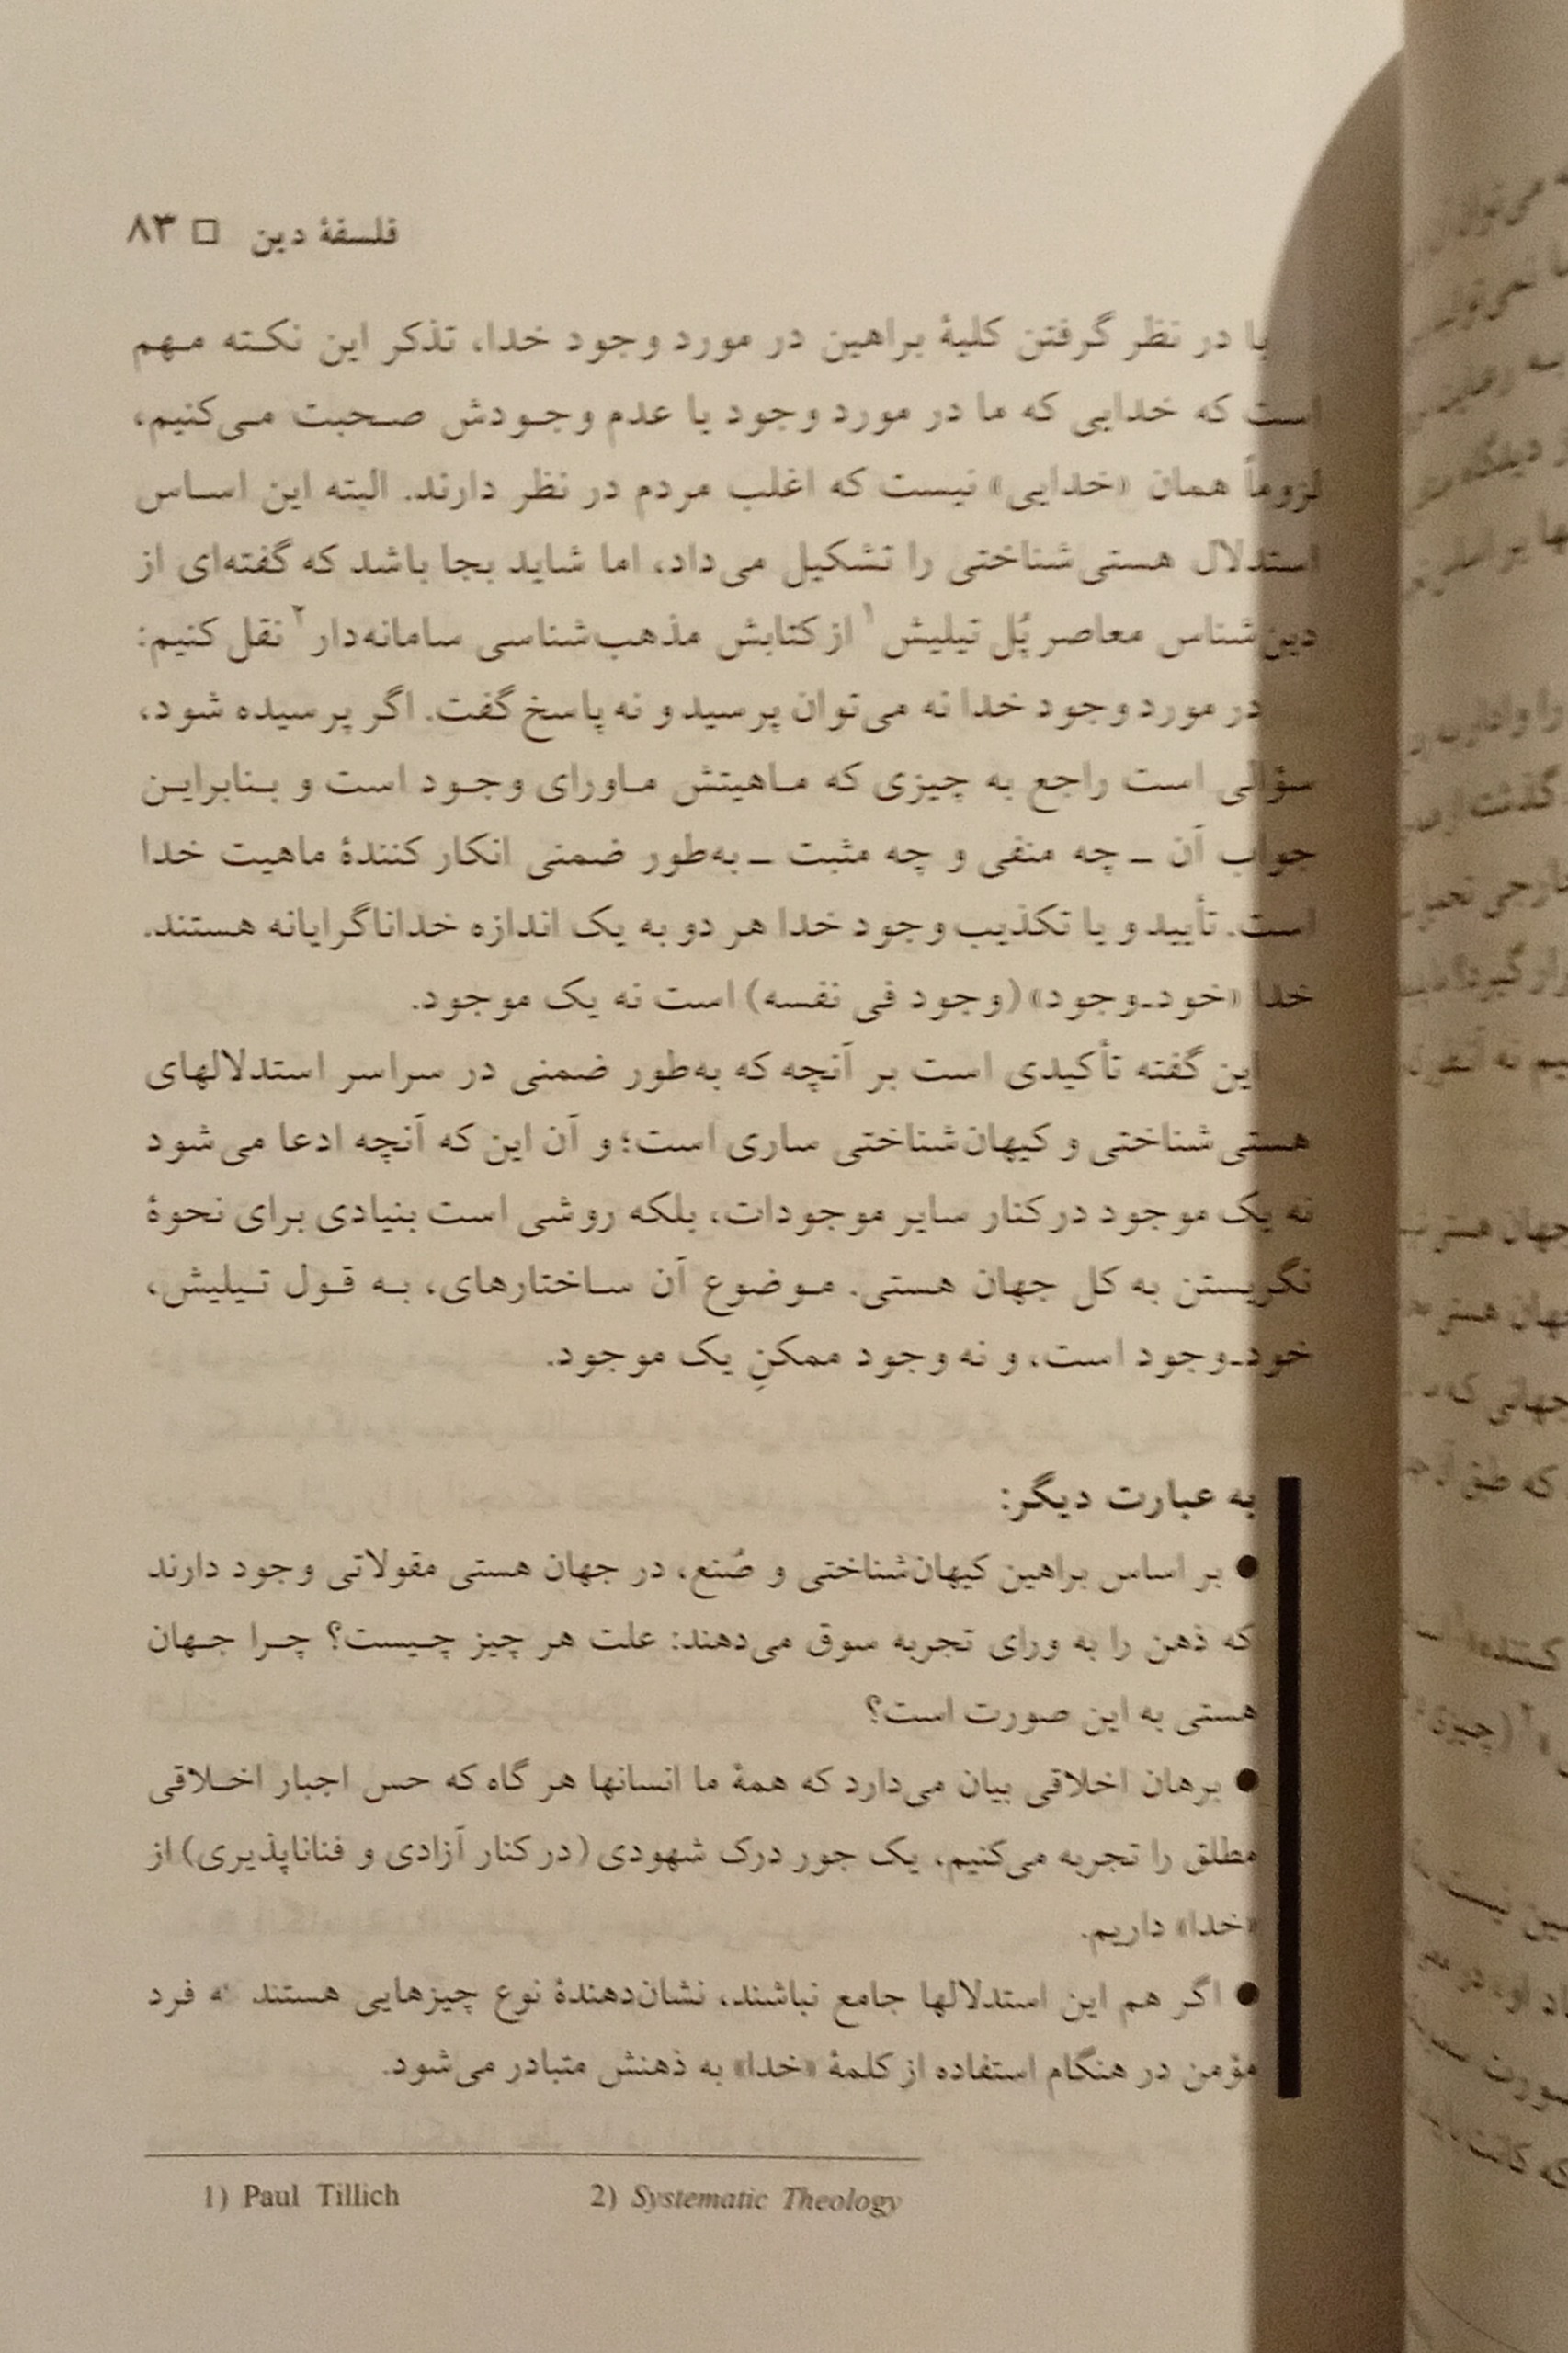 فلسفهٔ دین □ ۸۳
با در نظر گرفتن کلیهٔ براهین در مورد وجود خدا، تذکر این نکته مهم
است که خدایی که ما در مورد وجود یا عدم وجودش صحبت می‌کنیم،
لزوماً همان «خدایی» نیست که اغلب مردم در نظر دارند. البته این اساس
استدلال هستی‌شناختی را تشکیل می‌داد، اما شاید بجا باشد که گفته‌ای از
دین‌شناس معاصر پُل تیلیش۱ از کتابش مذهب‌شناسی سامانه‌دار۲ نقل کنیم:
در مورد وجود خدا نه می‌توان پرسید و نه پاسخ گفت. اگر پرسیده شود،
سؤالی است راجع به چیزی که ماهیتش ماورای وجود است و بنابراین
جواب آن ـ چه منفی و چه مثبت ـ به‌طور ضمنی انکار کنندهٔ ماهیت خدا
است. تأیید و یا تکذیب وجود خدا هر دو به یک اندازه خداناگرایانه هستند.
خدا «خودـوجود» (وجود فی نفسه) است نه یک موجود.
این گفته تأکیدی است بر آنچه که به‌طور ضمنی در سراسر استدلالهای
هستی‌شناختی و کیهان‌شناختی ساری است؛ و آن این که آنچه ادعا می‌شود
نه یک موجود در کنار سایر موجودات، بلکه روشی است بنیادی برای نحوهٔ
نگریستن به کل جهان هستی. موضوع آن ساختارهای، به قول تیلیش،
خودـوجود است، و نه وجود ممکنِ یک موجود.
به عبارت دیگر:
● بر اساس براهین کیهان‌شناختی و صُنع، در جهان هستی مقولاتی وجود دارند
که ذهن را به ورای تجربه سوق می‌دهند: علت هر چیز چیست؟ چرا جهان
هستی به این صورت است؟
● برهان اخلاقی بیان می‌دارد که همهٔ ما انسانها هر گاه که حس اجبار اخلاقی
مطلق را تجربه می‌کنیم، یک جور درک شهودی (در کنار آزادی و فناناپذیری) از
«خدا» داریم.
● اگر هم این استدلالها جامع نباشند، نشان‌دهندهٔ نوع چیزهایی هستند فرد
مؤمن در هنگام استفاده از کلمهٔ «خدا» به ذهنش متبادر می‌شود.
1) Paul Tillich 2) Systematic Theology